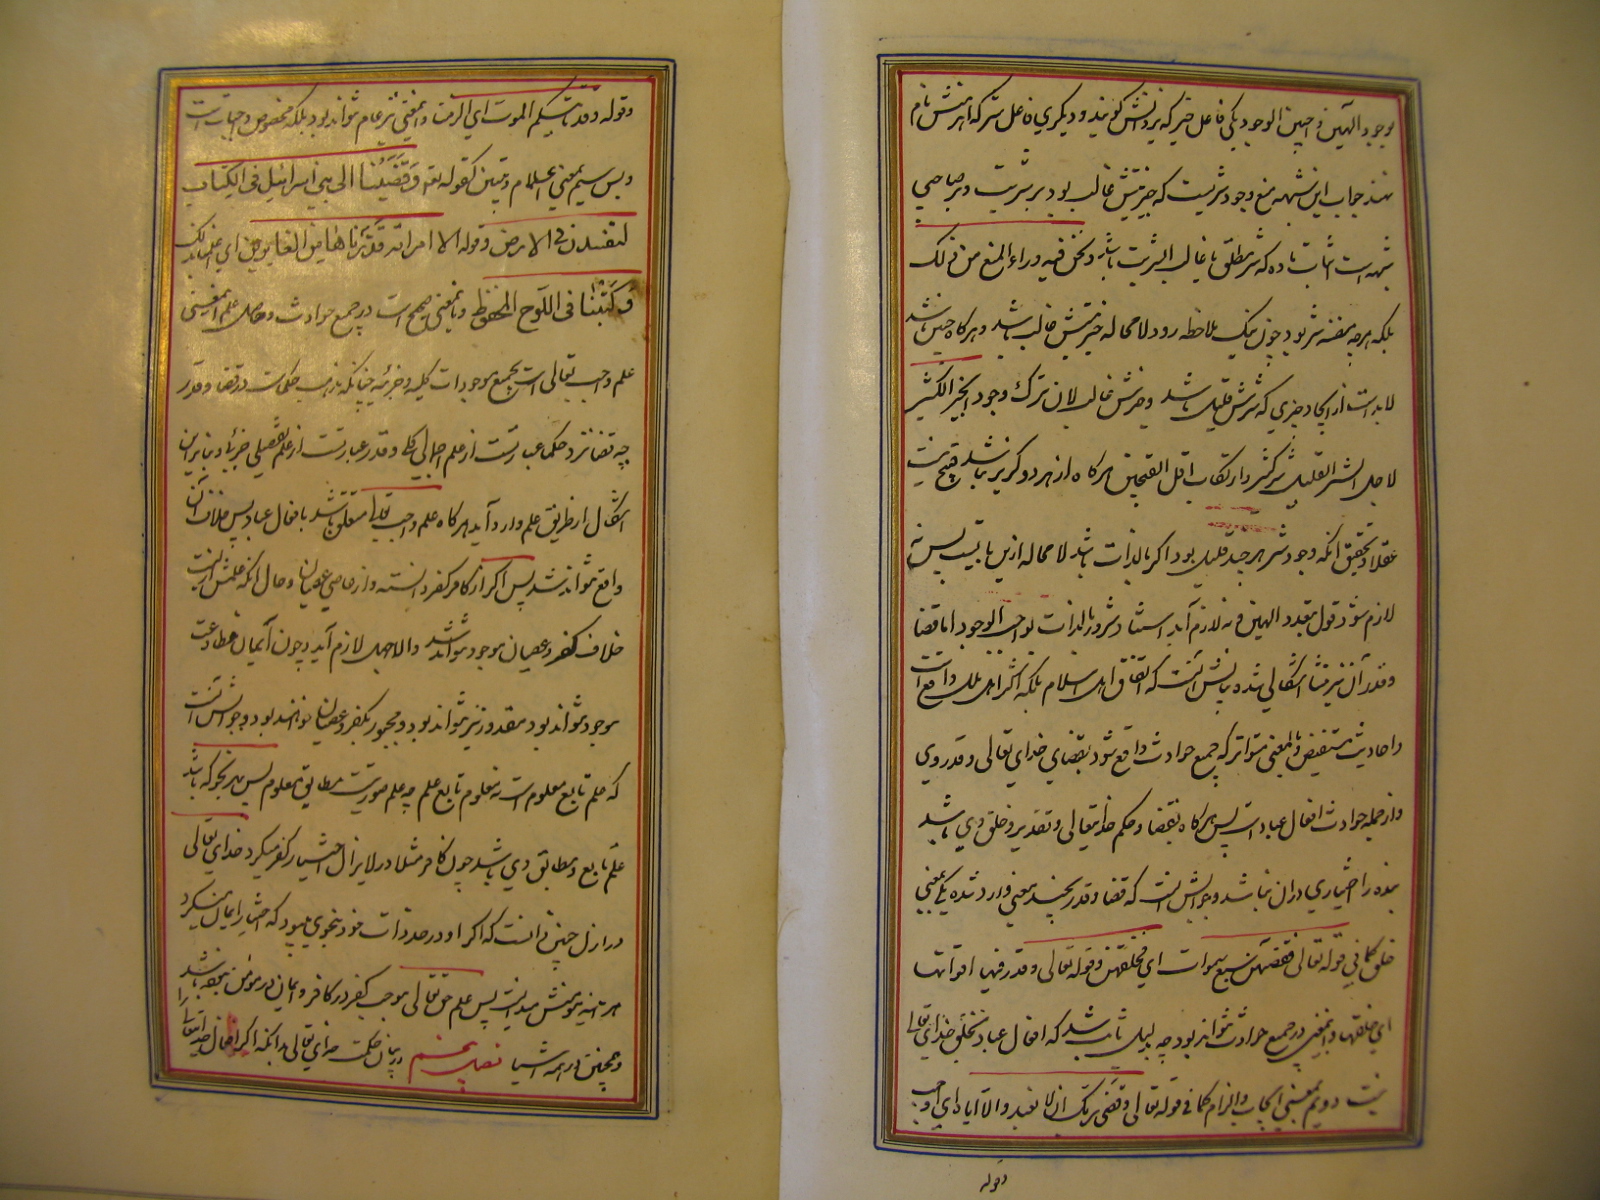 بوجود الهین واجبین الوجود یکی فاعل خیر که یزدانش گویند و دیگری فاعل شر که اهرمنش نام
نهند جواب این شبهه منع وجود شریست که خیریتش غالب بود بر شریت و بر صاحب
شبهه است اثبات ماده که شر مطلق یا غالب الشریت باشد و نحن فیه وراء المنع من ذلک
بلکه هرچه بنفسه شر بود چون نیک ملاحظه رود لا محاله خیریتش غالب باشد و هرگاه چنین باشد
لابد است از ایجاد چیزی که شرش قلیل باشد و خیرش غالب لان ترک وجود الخیر الکثیر
لاجل الشر القلیل شر کثیر و ارتکاب اقل القبیحین هرگاه از هر دو گریز نباشد قبیح نیست
عقلا و تحقیق آنکه وجود شر هر چند قلیل بود اگر بالذات باشد لا محاله از ین بابست پس نه
لازم شود قول بتعدد الهین و نه لازم آید استناد شرور بالذات بواجب الوجود اما قضا
و قدر آن نیز منشا اشکالی شده بیانش آنست که اتفاق اهل اسلام بلکه اکثر اهل ملل واقع است
و احادیث مستفیض و بالمعنی متواتر که جمیع حوادث واقع شود بقضای خدای تعالی و قدر وی
و از جمله حوادث افعال عباد است پس هرگاه بقضا و حکم خدایتعالی و تقدیر و خلق وی باشد
بنده را اختیاری در آن نباشد و جوابش آنست که قضا و قدر بچند معنی وارد شده یکی بمعنی
خلق کما فی قوله تعالی فقضیهن سبع سموات ای خلقهن و قوله تعالی و قدر فیها اقواتها
ای خلقها و باینمعنی در جمیع حوادث نتواند بود چه بدلیل ثابت شد که افعال عباد بخلق خدای تعالی
نیست دویم بمعنی ایجاب و الزام کما فی قوله تعالی و قضی ربک ان لا تعبدوا الا ایاه ای اوجب
وقوله
وقوله و قدرنا بینکم الموت ای الزمنا و باینمعنی نیز عام نتواند بود بلکه مخصوص واجبات است
و بس سیم بمعنی اعلام و تبیین کقوله تع وَقَضَیْنا الی بنی اسرائیل فی الکتاب
لتفسدن فی الارض و قوله الا امراته قَدَّرْنَاهَا مِنَ الغابرین ای اعلمنا بذلک
وَكَتَبْنَا فی اللوح المحفوظ و باینمعنی صحیح است در جمیع حوادث و حاصل علم بمعنی
علم واجب تعالی است بجمیع موجودات کلیه و جزئیه چنانکه مذهب حکماست در قضا و قدر
چه قضا نزد حکما عبارتست از علم اجمالی کلی و قدر عبارتست از علم تفصیلی جزئی و بنابرین
اشکال از طریق علم وارد آید هرگاه علم واجب تعالی متعلق باشد بافعال عباد پس خلاف آن
واقع نتواند شد پس اگر از کافر کفر دانسته و از عاصی عصیان و حال آنکه علمش ازلیست
خلاف کفر و عصیان موجود نتواند شد والا جهل لازم آید و چون ایمان و اطاعت
موجود نتواند بود مقدور نیز نتواند بود و مجبور بکفر و عصیان خواهند بود و جوابش آنست
که علم تابع معلوم است نه معلوم تابع علم چه علم صورتیست مطابق معلوم پس بهر نحو که باشد
علم تابع و مطابق وی باشد چون کافر مثلا در لا یزال باختیار کفر میکرد خدای تعالی
در ازل چنین دانست که اگر او در حد ذات خود بنحوی میبود که اختیار ایمان میکرد
هر آینه مومنش میدانست پس علم حق تعالی موجب کفر در کافر و ایمان در مومن نمیباشد
و همچنین در همه اشیا فصل پنجم در بیان حکمت خدای تعالی بدانکه اگر افعال خدایتعالی را